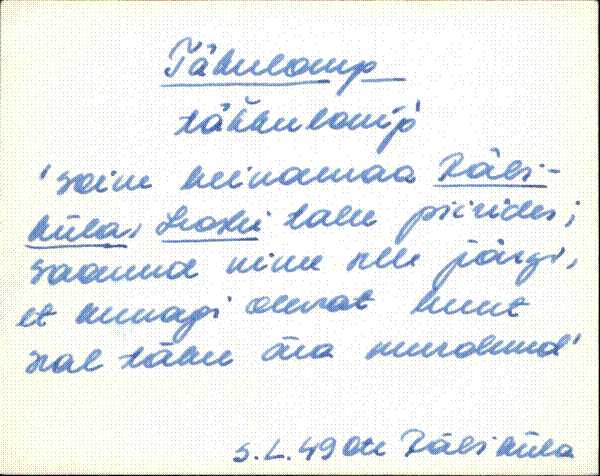 Täkulomp
täkkulomp
'soine heinamaa Räbi-
küla, talu piirides;
saanud nime selle järgi,
et kunagi olevat hunt
seal täku ära murdnud'
S.L. 49 Ote Räbiküla